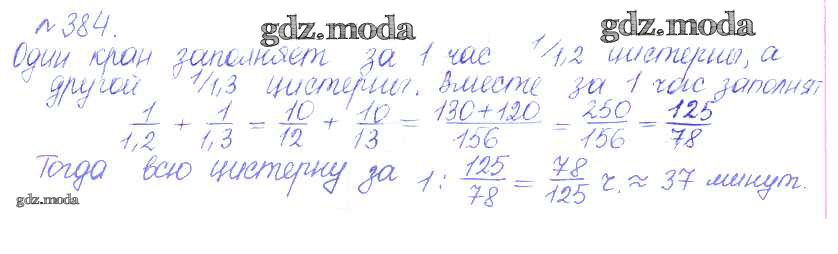 №384.
gdz.moda
gdz.moda
Один кран заполняет за 1 час 1/1,2 цистерны, а
другой 1/1,3 цистерны. Вместе за 1 час заполнят
1/1,2 + 1/1,3 = 10/12 + 10/13 = 130+120/156 = 250/156 = 125/78
Тогда всю цистерну за 1 : 125/78 = 78/125 ч. ≈ 37 минут.
gdz.moda